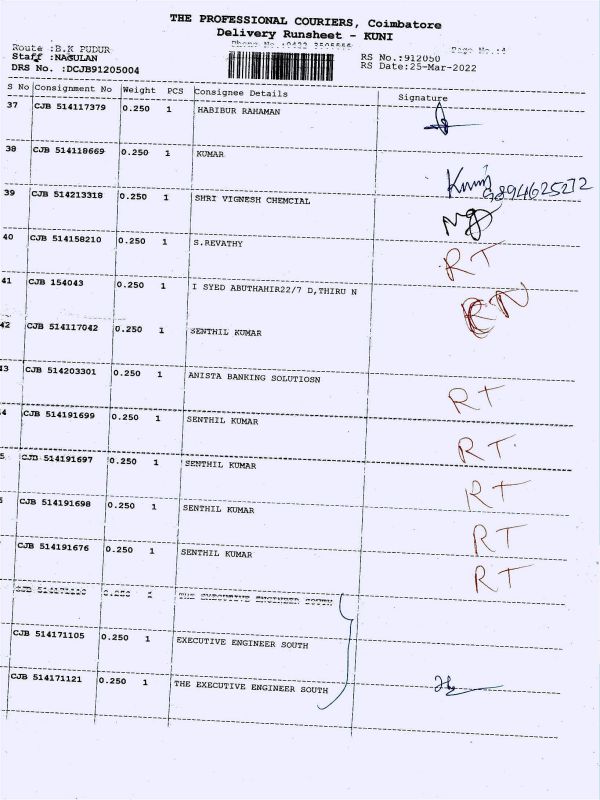 THE PROFESSIONAL COURIERS, Coimbatore
Delivery Runsheet - KUNI
Route :B.K PUDUR
Page No.:4
Staff :NAGULAN
RS No.:912050
DRS No. :DCJB91205004
RS Date:25-Mar-2022
S No Consignment No Weight PCS Consignee Details Signature
37 CJB 514117379 0.250 1 HABIBUR RAHAMAN
38 CJB 514118669 0.250 1 KUMAR
9894625272
39 CJB 514213318 0.250 1 SHRI VIGNESH CHEMCIAL
40 CJB 514158210 0.250 1 S.REVATHY RT
41 CJB 154043 0.250 1 I SYED ABUTHAHIR22/7 D,THIRU N
42 CJB 514117042 0.250 1 SENTHIL KUMAR
13 CJB 514203301 0.250 1 ANISTA BANKING SOLUTIOSN RT
4 CJB 514191699 0.250 1 SENTHIL KUMAR RT
5 CJB 514191697 0.250 1 SENTHIL KUMAR RT
CJB 514191698 0.250 1 SENTHIL KUMAR RT
CJB 514191676 0.250 1 SENTHIL KUMAR RT
0.250 1 THE EXECUTIVE ENGINEER SOUTH
CJB 514171105 0.250 1 EXECUTIVE ENGINEER SOUTH
CJB 514171121 0.250 1 THE EXECUTIVE ENGINEER SOUTH